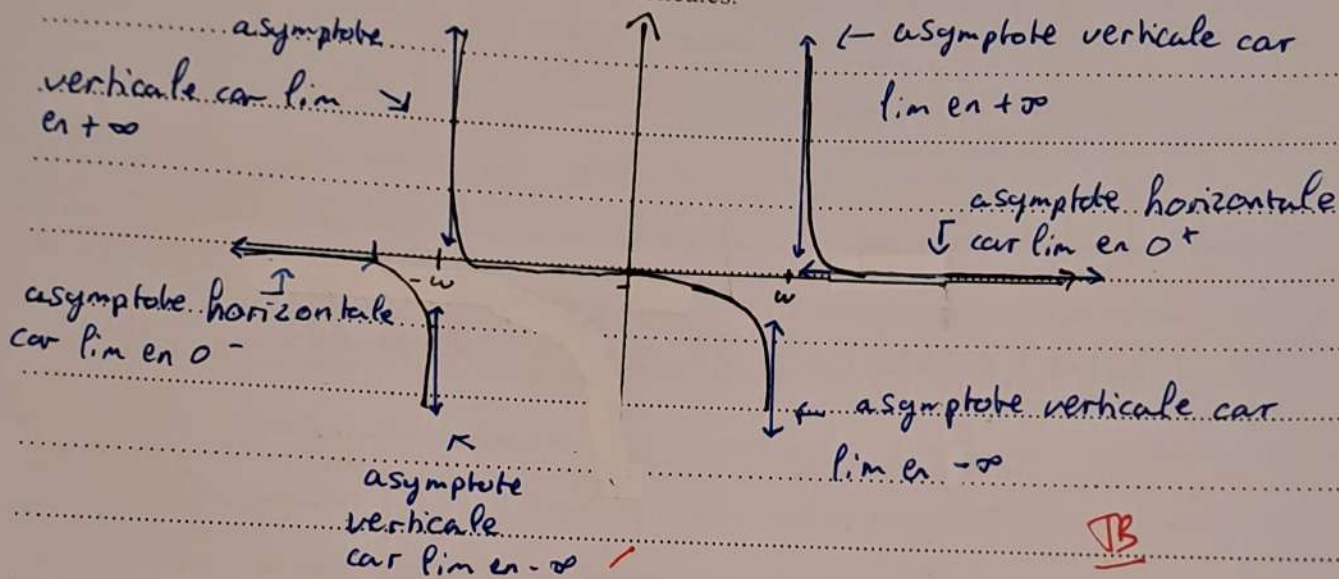 asymptote
verticale car lim ↘
en +∞
← asymptote verticale car
lim en +∞
asymptote horizontale
↓ car lim en 0+
-ω
ω
↑
asymptote horizontale
car lim en 0 -
← asymptote verticale car
lim en -∞
↖
asymptote
verticale
car lim en -∞
TB